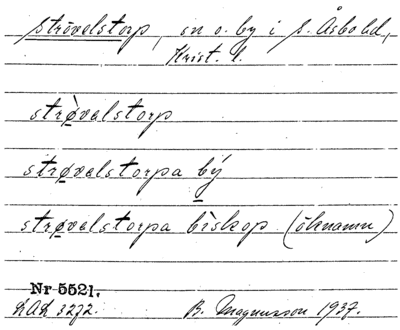 Strövelstorp, sn o. by i S. Åsbo hd,
Krist. l.
strø̀velstorp
strøvelstorpa bý
strøvelstorpa biskop (öknamn)
Nr 5521.
LAL 3272. B. Magnusson 1937.